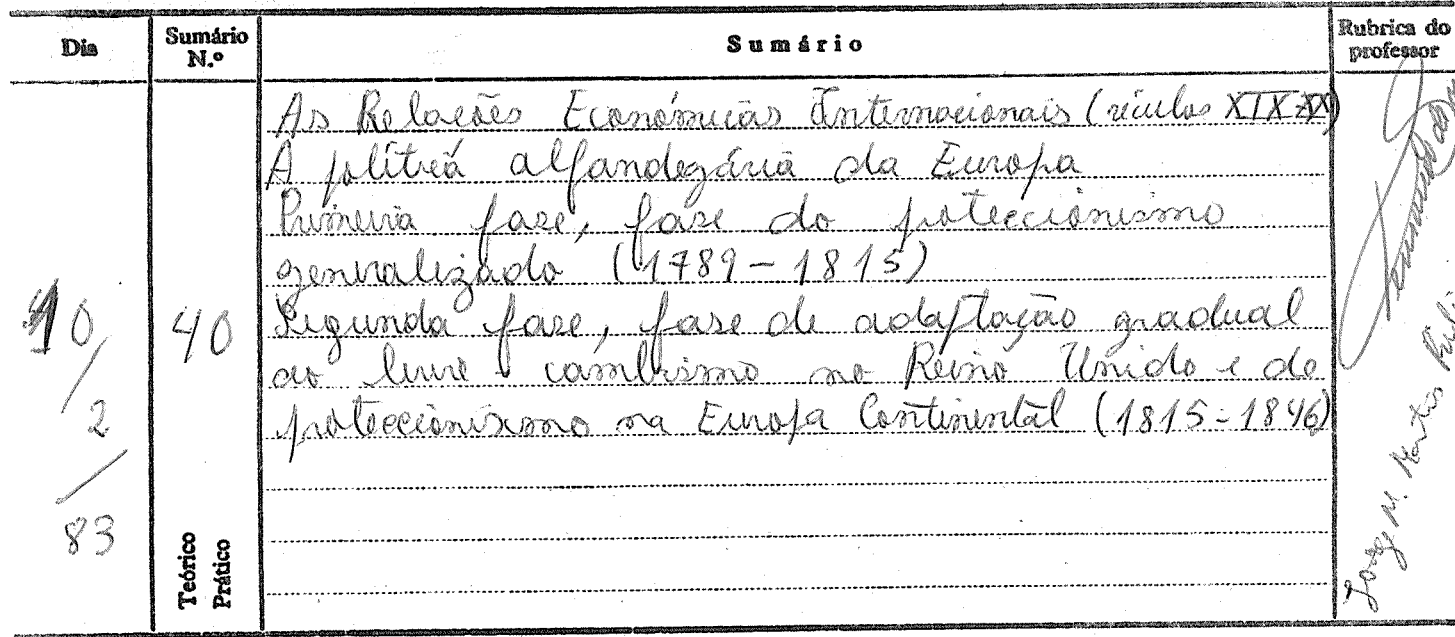 Dia
Sumário N.º
Sumário
Rubrica do professor
As Relações Económicas Internacionais (séculos XIX-XX)
A política alfandegária da Europa
Primeira fase, fase do proteccionismo
generalizado (1789-1815)
Segunda fase, fase de adaptação gradual
ao livre cambismo no Reino Unido e do
proteccionismo na Europa Continental (1815-1846)
10/2/83
40
Teórico
Prático
Jorge M. Martins